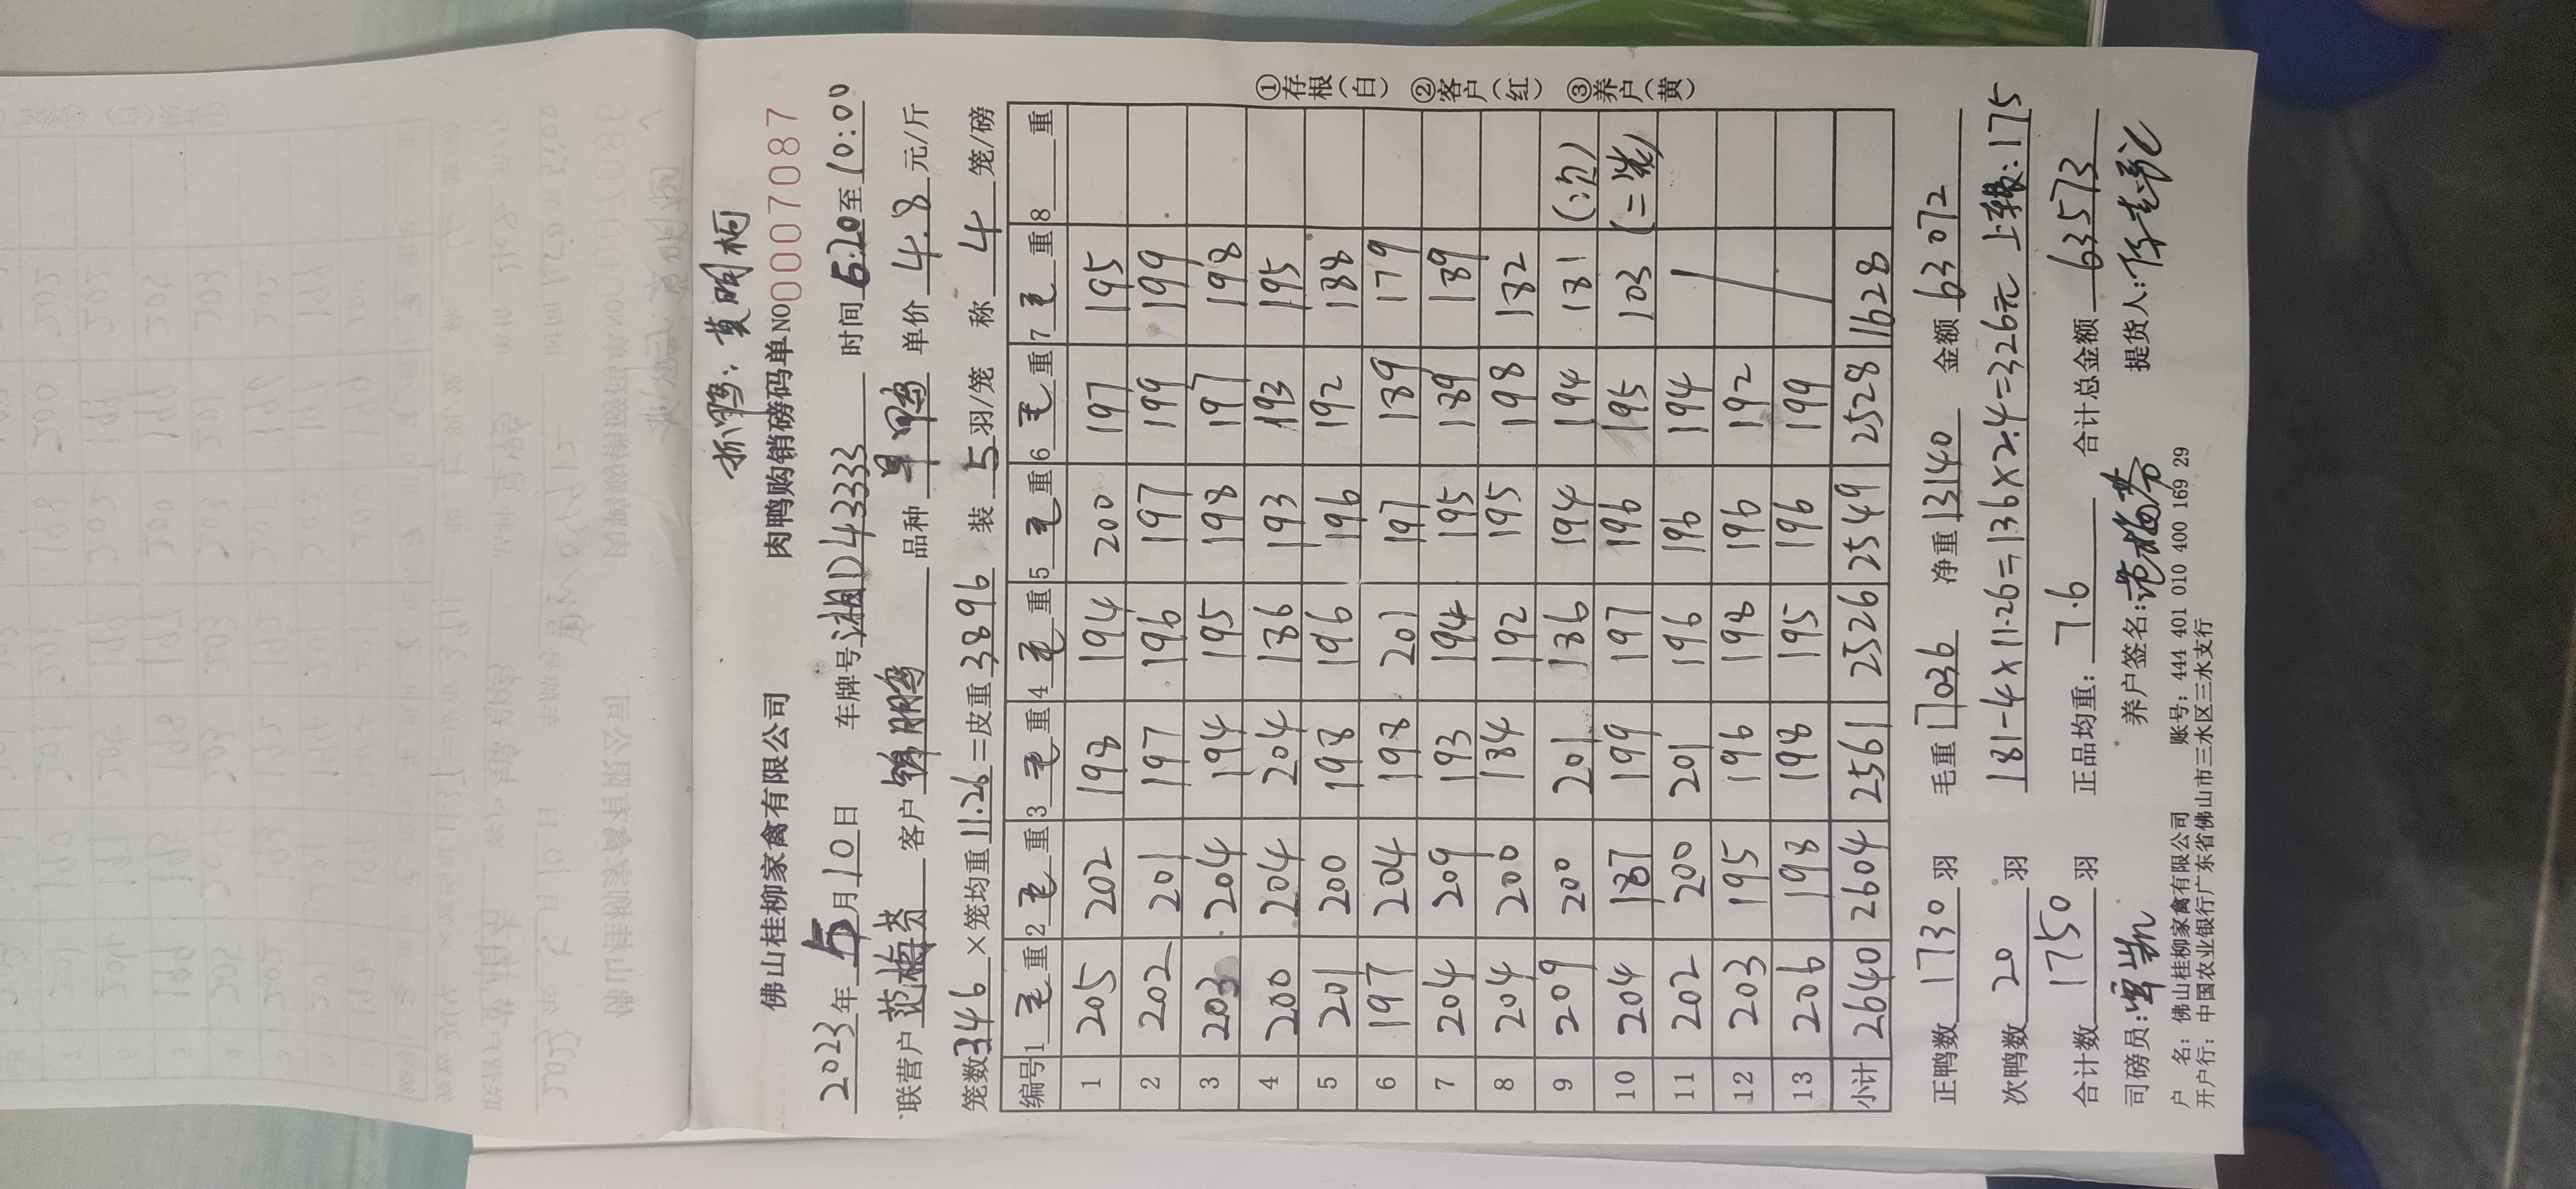 抓鸭：黄明柯
佛山桂柳家禽有限公司 肉鸭购销磅码单 NO0007087
2023年5月10日 车牌号湘D43333 时间6:20至10:00
联营户范梅芬 客户 鹏鸭 品种旱鸭 单价4.8元/斤
笼数346×笼均重11.26=皮重3896 装5羽/笼 称4笼/磅
编号 1毛重 2毛重 3毛重 4毛重 5毛重 6毛重 7毛重 8 重
1 205 202 198 194 200 197 195
2 202 201 197 196 197 199 199
3 203 204 194 195 198 197 198
4 200 204 204 186 193 193 195
5 201 200 198 196 196 192 188
6 197 204 198 201 197 189 179
7 204 209 193 194 195 189 189
8 204 200 184 192 195 198 182
9 209 200 201 186 194 194 181 (次)
10 204 187 199 197 196 195 103 (二笼)
11 202 200 201 196 196 194
12 203 195 196 198 196 192
13 206 198 198 195 196 199
小计 2640 2604 2561 2526 2549 2528 1628
①存根（白） ②客户（红） ③养户（黄）
正鸭数1730羽 毛重17036 净重13140 金额63072
次鸭数20羽 181-4×11.26=136×2.4=326元 上车费:175
合计数1750羽 正品均重：7.6 合计总金额63573
司磅员: 养户签名:范梅芬 提货人:
户 名：佛山桂柳家禽有限公司 账号：444 401 010 400 169 29
开户行：中国农业银行广东省佛山市三水区三水支行